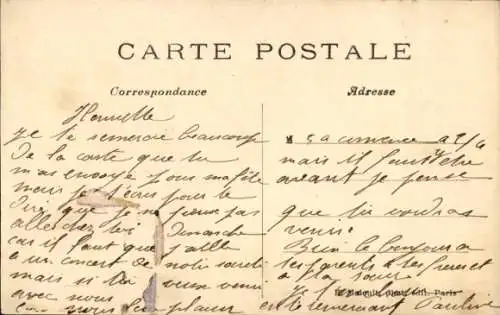 CARTE POSTALE
Correspondance
Adresse
Henriette
je te remercie beaucoup
de la carte que tu
m'as envoyé pour ma fête
mais je t'écris pour te
dire que je ne pourrai pas
aller chez toi dimanche
car il faut que j'aille
a un concert de notre société
mais si tu veux venir
avec nous
nous plaisir
sa commence a 2/4
mais il faut être
avant je pense
que tu voudras
venir
Bien le bonjour a
tes parents a tes freres et
a ta soeur
Je
te remerciant Pauline
Paris